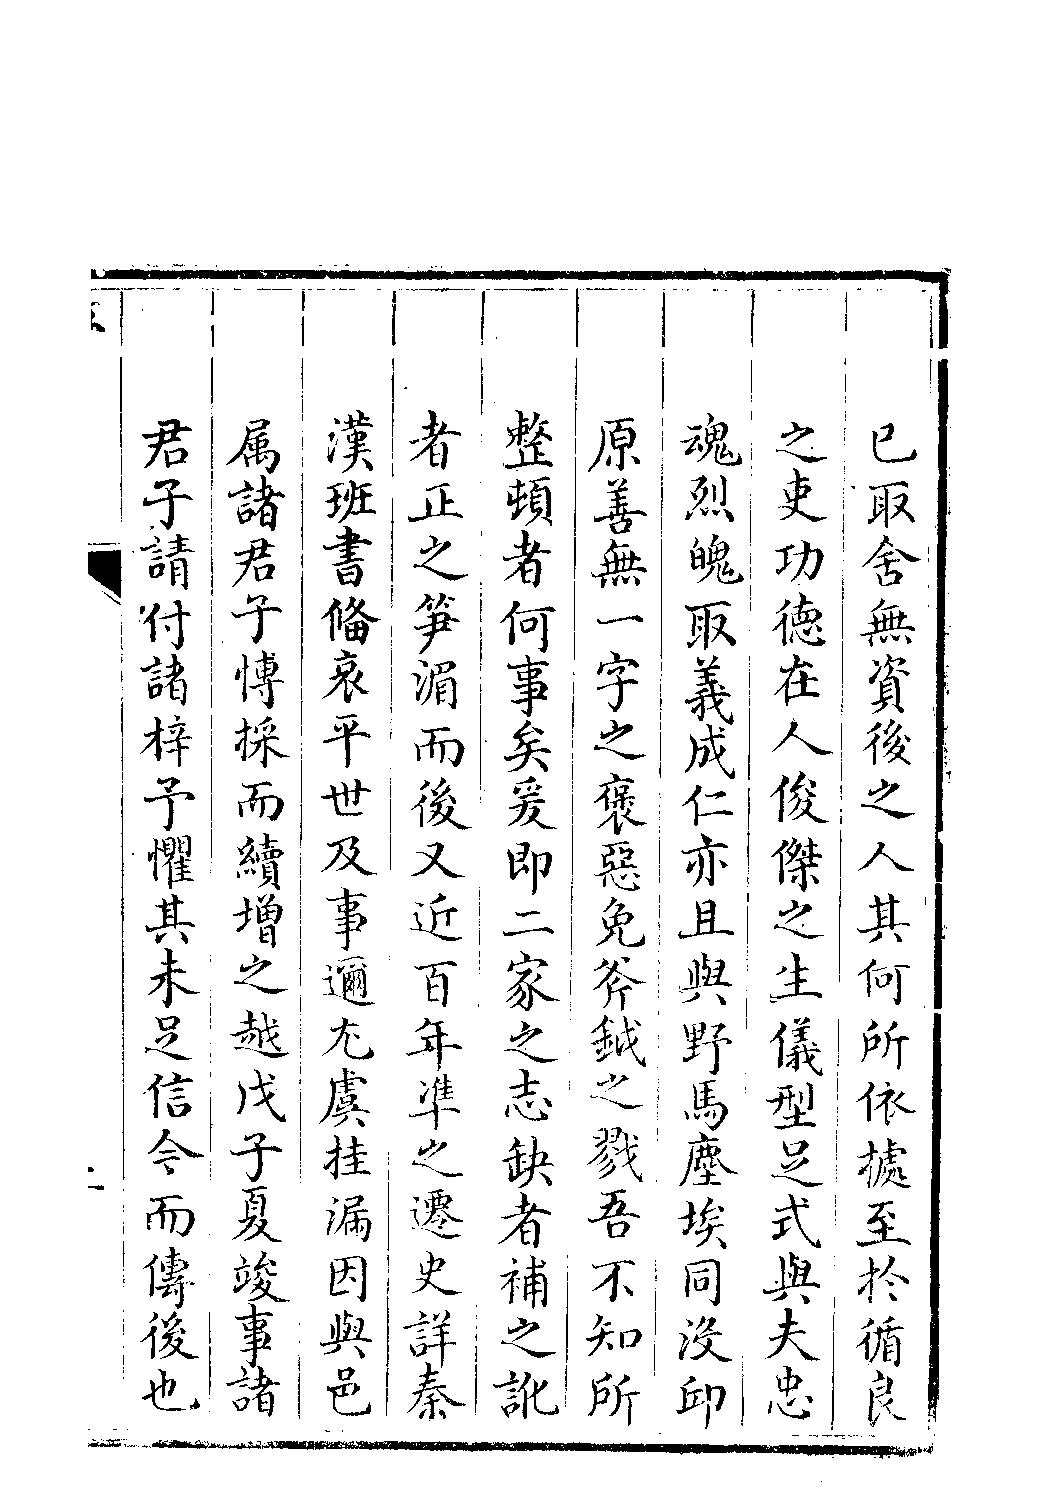 已取舍無資後之人其何所依據至於循良
之吏功德在人俊傑之生儀型足式與夫忠
魂烈魄取義成仁亦且與野馬塵埃同没邱
原善無一字之褒惡免斧鉞之戮吾不知所
整頓者何事矣爰即二家之志缺者補之訛
者正之笋湄而後又近百年凖之遷史詳秦
漢班書俻哀平世及事邇尤虞挂漏因與邑
属諸君子愽採而續增之越戊子夏竣事諸
君子請付諸梓予懼其未足信今而傳後也